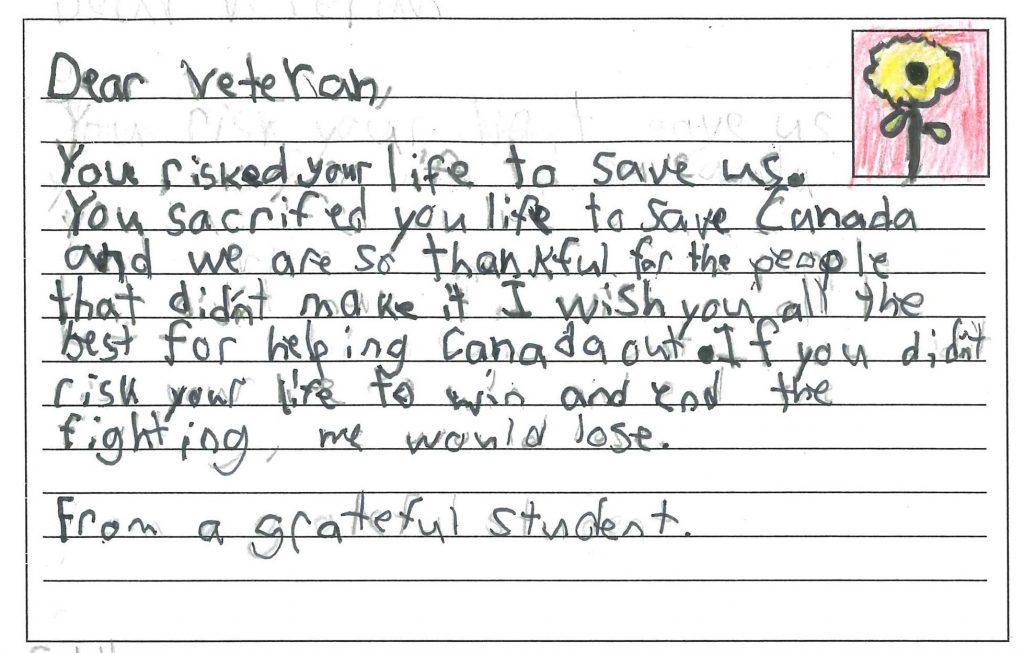 Dear Veteran,
You risked your life to save us.
You sacrifed you life to save Canada
and we are so thankful for the people
that didn't make it I wish you all the
best for helping Canada out. If you didn't
risk your life to win and end the
fighting, me would lose.
From a grateful student.